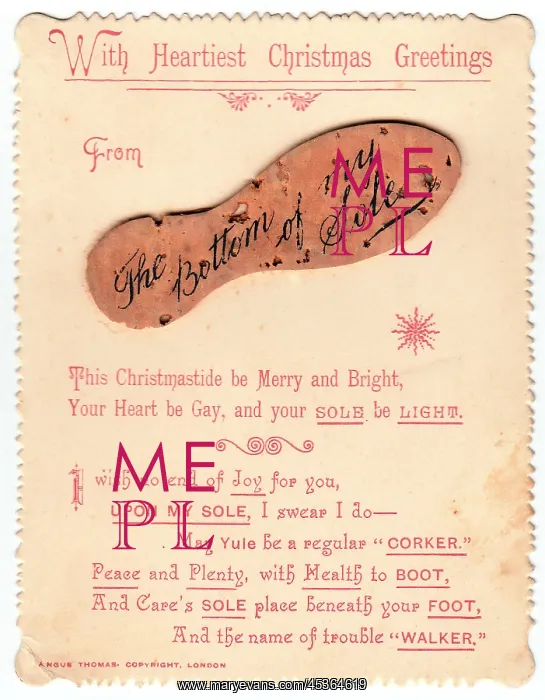 With Heartiest Christmas Greetings
From
The Bottom of my Sole
ME
PL
This Christmastide be Merry and Bright,
Your Heart be Gay, and your SOLE be LIGHT.
I wish no end of Joy for you,
UPON MY SOLE, I swear I do—
May Yule be a regular “CORKER.”
Peace and Plenty, with Health to BOOT,
And Care's SOLE place beneath your FOOT,
And the name of trouble “WALKER.”
ME
PL
ANGUS THOMAS. COPYRIGHT, LONDON
www.maryevans.com/45364619